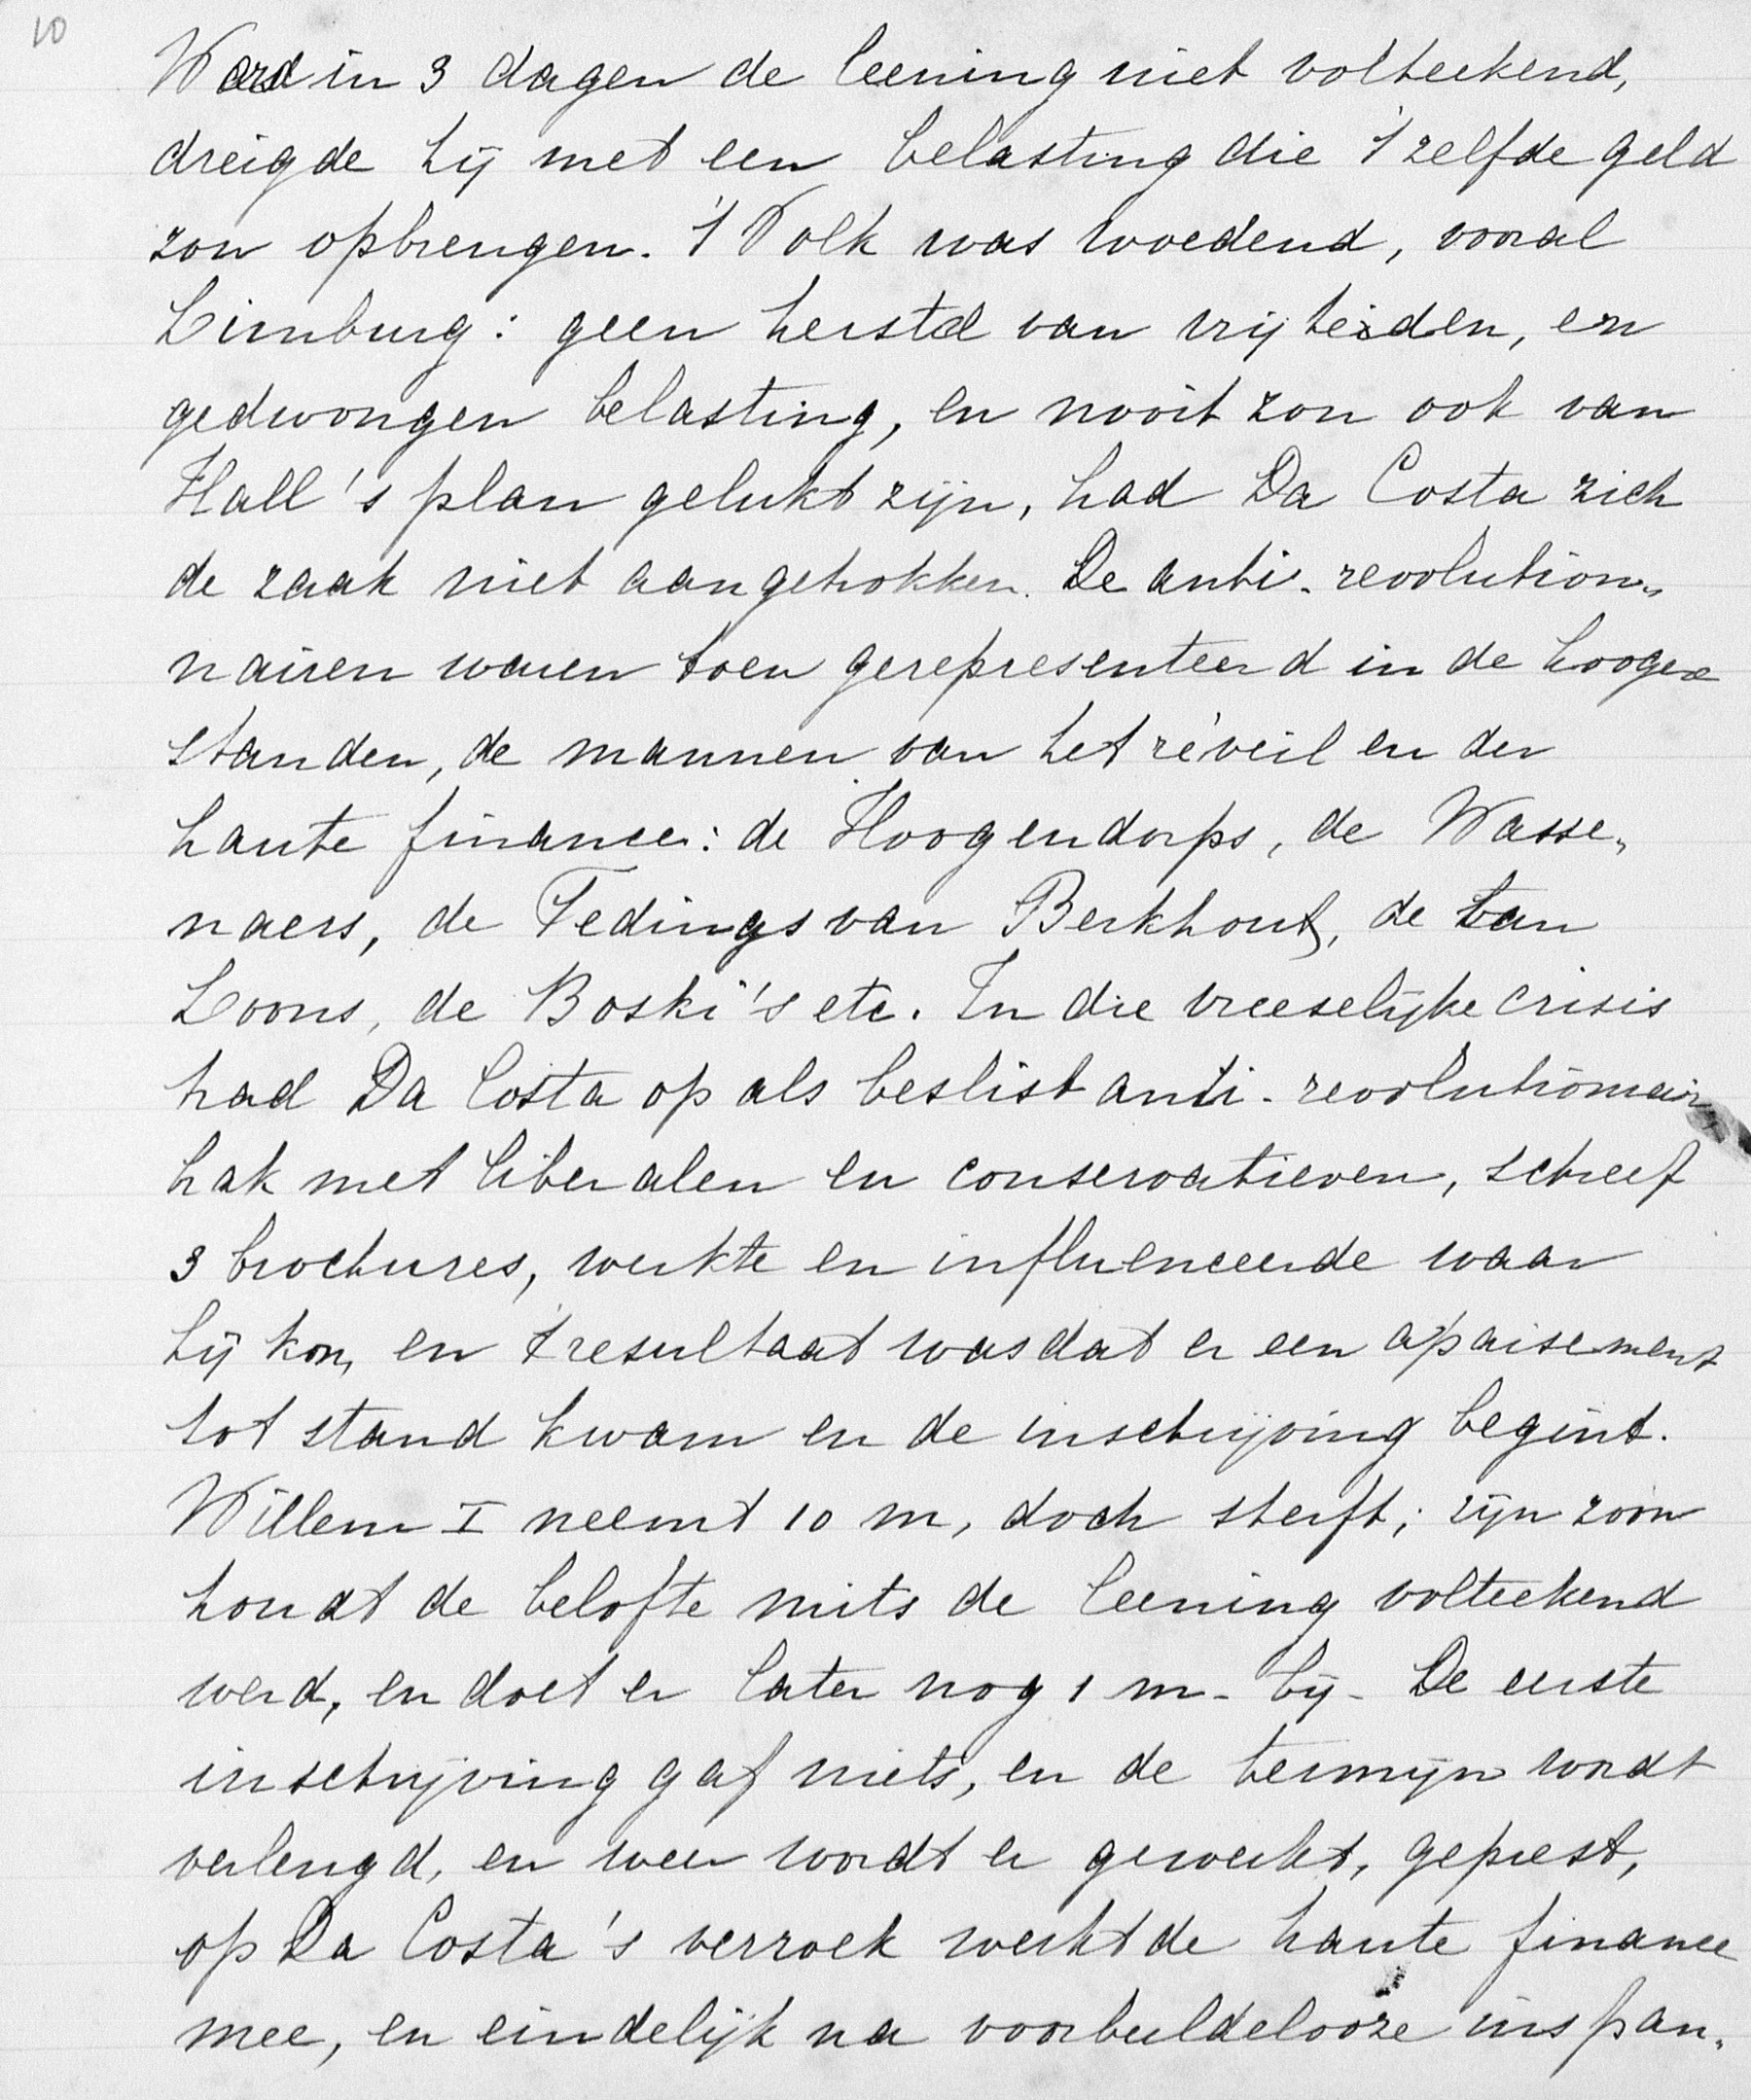 10
Werd in 3 dagen de leening niet volteekend,
dreigde hij met een belasting die 't zelfde geld
zou opbrengen. 't Volk was woedend, vooral
Limburg: geen herstel van vrijheiden, en
gedwongen belasting, en nooit zou ook van
Hall's plan gelukt zijn, had Da Costa zich
de zaak niet aangetrokken. De anti-revolution-
nairen waren toen gerepresenteerd in de hoogere
standen, de mannen van het réveil en der
haute finance: de Hoogendorps, de Wasse-
naers, de Tedings van Berkhout, de van
Loons, de Boski's etc. In die vreeselijke crisis
trad Da Costa op als beslist anti-revolutionnair,
brak met liberalen en conservatieven, schreef
3 brochures, werkte en influenceerde waar
hij kon, en 't resultaat was dat er een apaisement
tot stand kwam en de inschrijving begint.
Willem I neemt 10 m, doch sterft; zijn zoon
houdt de belofte mits de leening volteekend
werd, en doet er later nog 1 m. bij. De eerste
inschrijving gaf niets, en de termijn wordt
verlengd, en weer wordt er gewerkt, geprest,
op Da Costa's verzoek werkt de haute finance
mee, en eindelijk na voorbeeldelooze inspan-